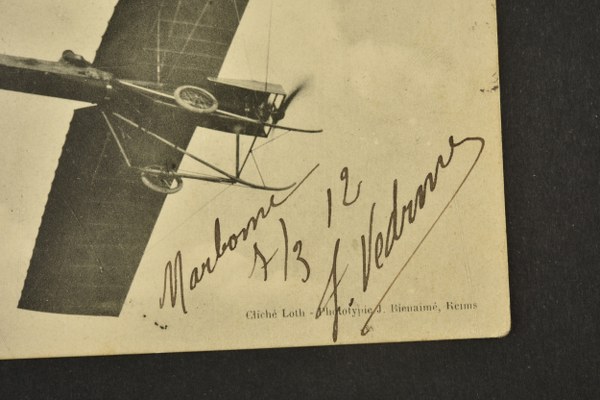 Narbonne
7/3 12
J. Vedrines
Cliché Loth - Phototypie J. Bienaimé, Reims